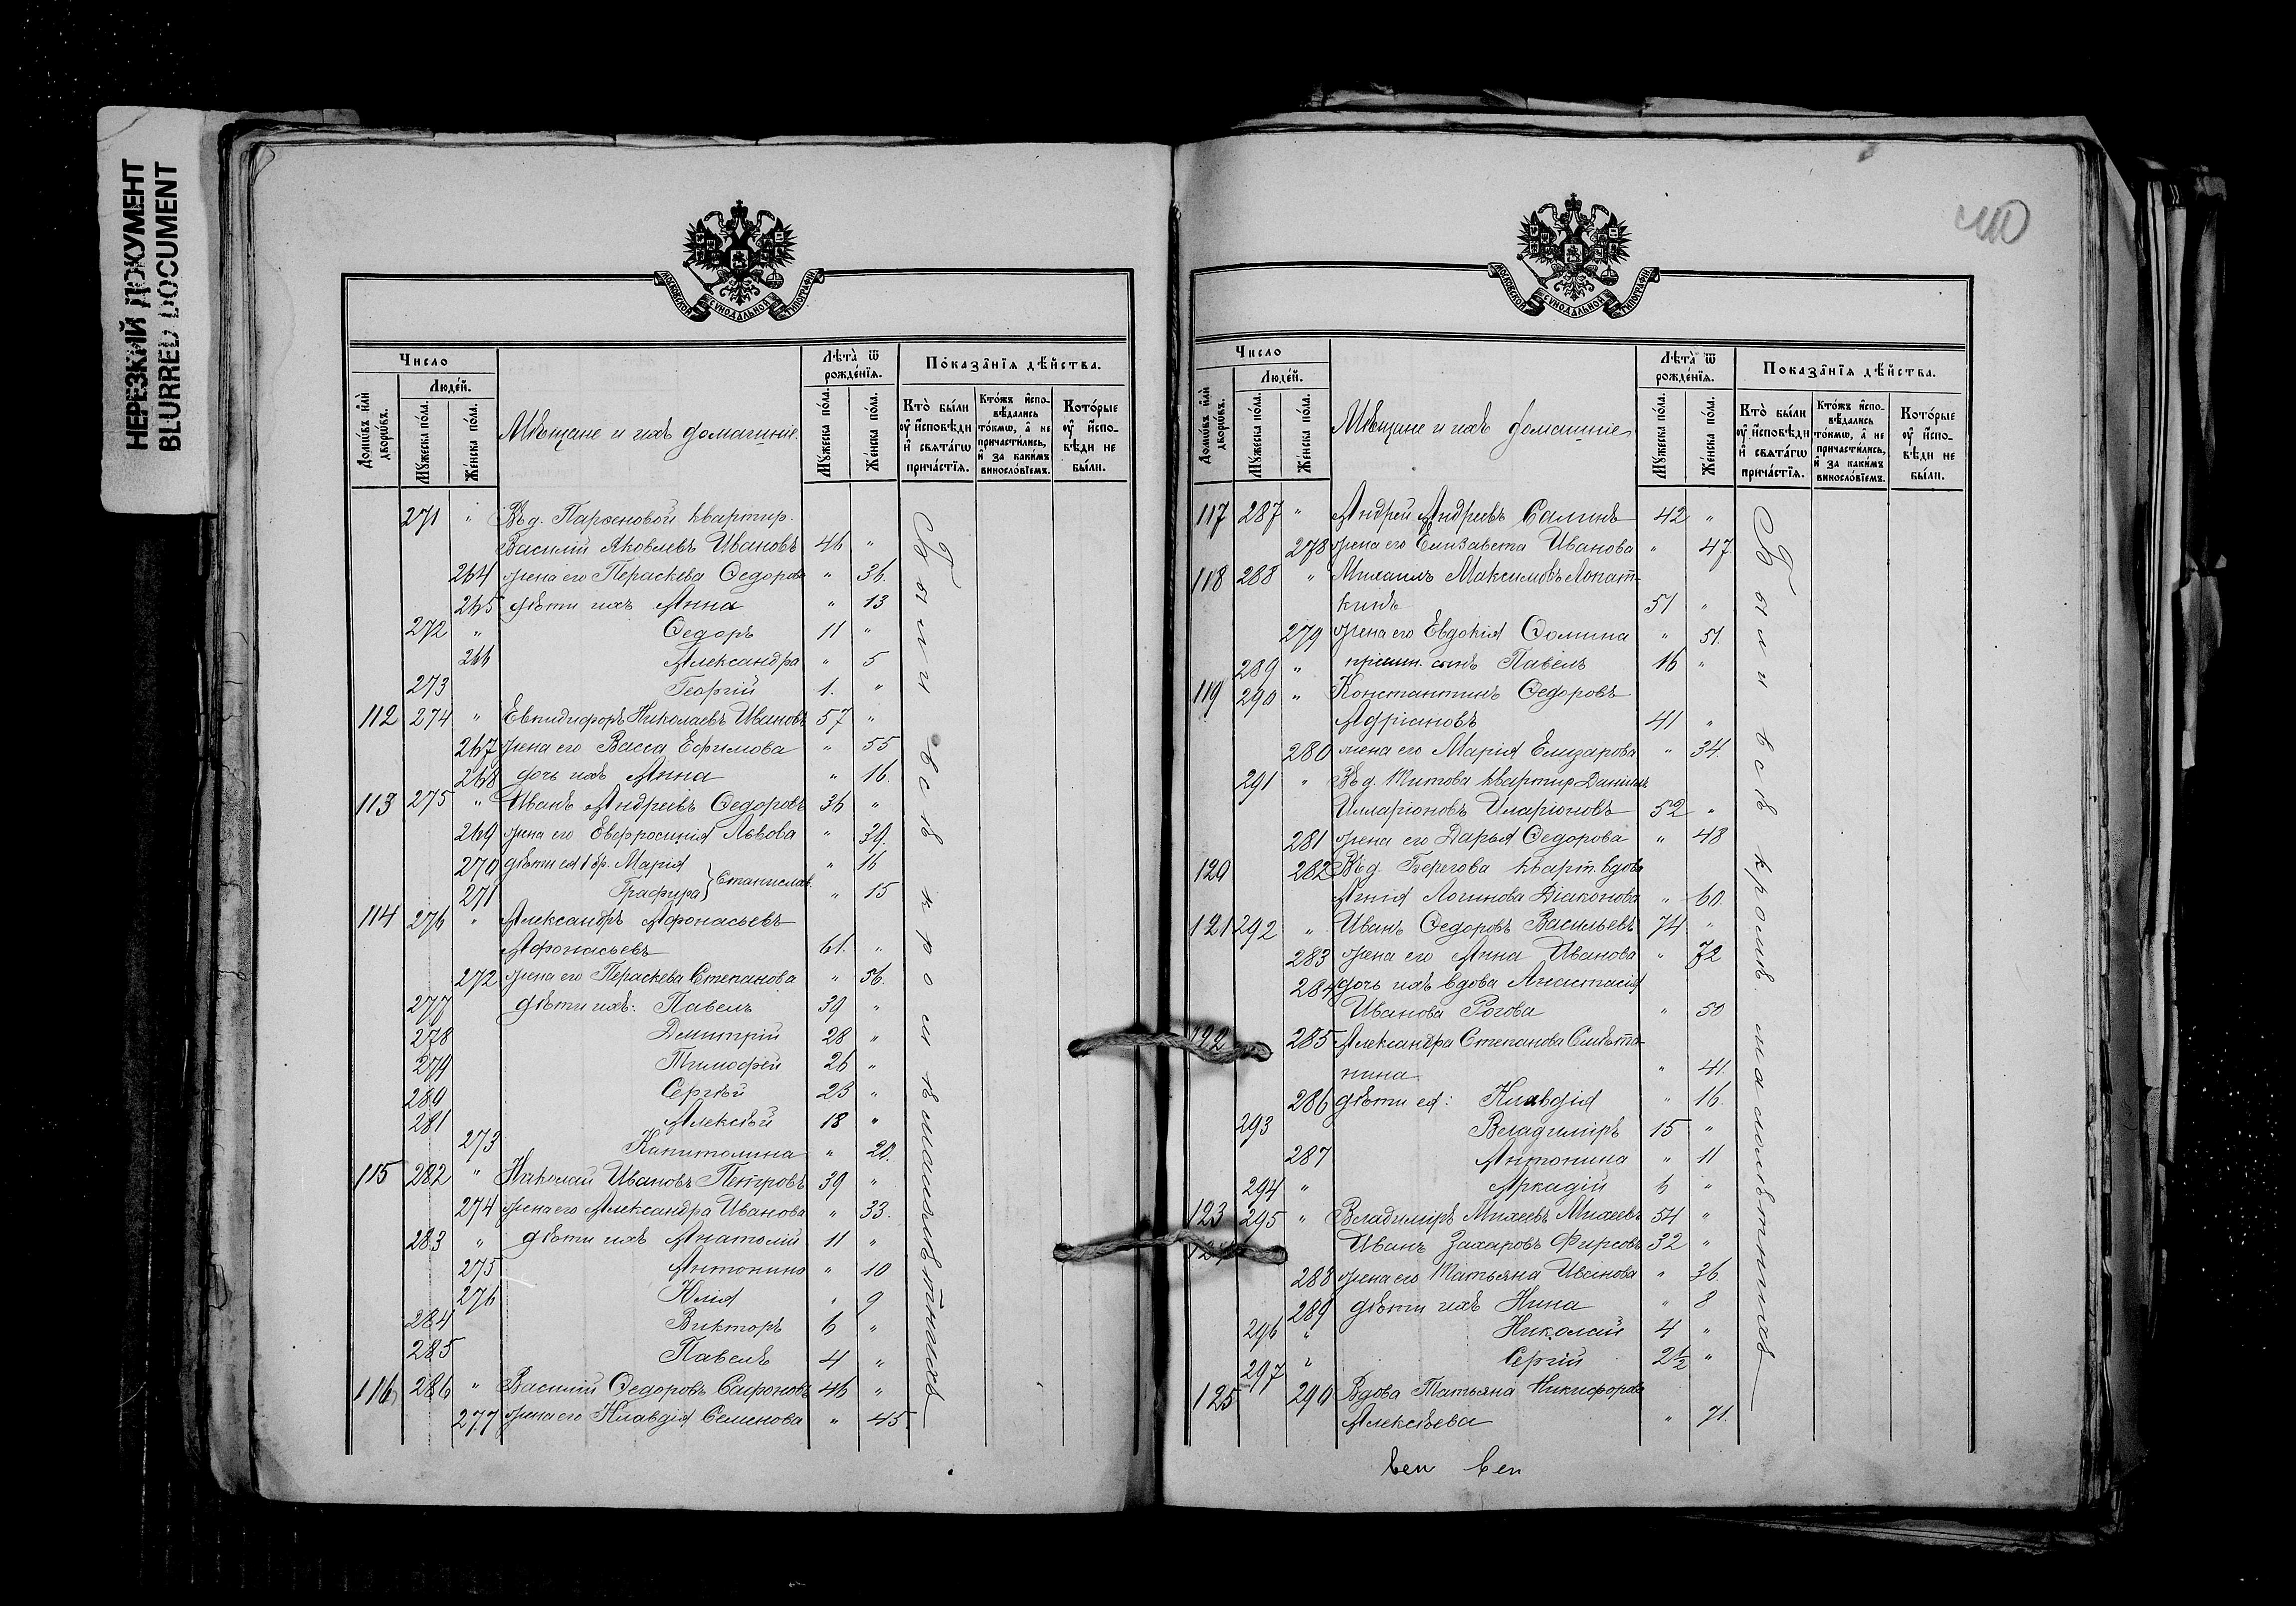 НЕРЕЗКИЙ ДОКУМЕНТ
BLURRED DOCUMENT
МОСКОВСКОЙ СѴНОДАЛЬНОЙ ТИПОГРАФІИ
Число
Людéй.
Домѡ́въ и҆лѝ дворѡ́въ.
Мꙋ́жеска по́ла.
Же́нска по́ла.
Мѣщане и ихъ домашніе.
Лѣта̀ ѿ рожде́нїѧ.
Мꙋ́жеска по́ла.
Же́нска по́ла.
Пока́за̂нїѧ дѣ́йства.
Кто̀ бы́ли ᲂу҆ и҆сповѣ́ди и҆ свѧта́гѡ прича́стїѧ.
Кто́жъ и҆сповѣ́дались то́кмѡ, а҆ не причасти́лись, и҆ за каки́мъ винословїемъ.
Кото́рые ᲂу҆ и҆сповѣ́ди не бы́ли.
271 " Въ д. Парѳеновой квартир.
Василій Яковлевъ Ивановъ 46 "
264 жена его Параскева Ѳедорова " 36.
265 дѣти ихъ Анна " 13
272 " Ѳедоръ 11 "
266 Александра " 5
273 Георгій 1. "
112 274 " Евпидифоръ Николаевъ Ивановъ 57 "
267 жена его Васса Ефимова " 55
268 дочь ихъ Анна " 16.
113 275 " Иванъ Андреевъ Ѳедоровъ 36 "
269 жена его Евфросинія Львова " 39.
270 дѣти ея 1 бр. Марія " 16
271 Графира } Станислав. " 15
114 276 " Александръ Афонасьевъ
Афонасьевъ 61. "
272 жена его Параскева Степанова " 56.
277 дѣти ихъ: Павелъ 39 "
278 Дмитрій 28 "
279 Тимофей 26 "
280 Сергѣй 23 "
281 Алексѣй 18 "
273 Капитолина " 20.
115 282 " Николай Ивановъ Петровъ 39 "
274 жена его Александра Иванова " 33.
283 " дѣти ихъ Анатолій 11 "
275 Антонина " 10
276 Юлія " 9
284 Викторъ 6 "
285 Павелъ 4 "
116 286 " Василій Ѳедоровъ Сафоновъ 46 "
277 жена его Клавдія Семенова " 45.
Были всѣ кромѣ малолѣтнихъ
МОСКОВСКОЙ СѴНОДАЛЬНОЙ ТИПОГРАФІИ
Число
Людéй.
Домѡ́въ и҆лѝ дворѡ́въ.
Мꙋ́жеска по́ла.
Же́нска по́ла.
Мѣщане и ихъ домашніе
Лѣта̀ ѿ рожде́нїѧ.
Мꙋ́жеска по́ла.
Же́нска по́ла.
Пока́за̂нїѧ дѣ́йства.
Кто̀ бы́ли ᲂу҆ и҆сповѣ́ди и҆ свѧта́гѡ прича́стїѧ.
Кто́жъ и҆сповѣ́дались то́кмѡ, а҆ не причасти́лись, и҆ за каки́мъ винословїемъ.
Кото́рые ᲂу҆ и҆сповѣ́ди не бы́ли.
117 287 " Андрей Андреевъ Салинъ 42 "
278 жена его Елизавета Иванова " 47
118 288 " Михаилъ Максимовъ Лопат-
кинъ 51 "
279 жена его Евдокія Ѳомина " 51.
289 " пріемн. сынъ Павелъ 16 "
119 290 " Константинъ Ѳедоровъ
Адріановъ 41 "
280 жена его Марія Елизарова " 34.
291 " Въ д. Титова квартир Даніилъ
Илларіоновъ Иларіоновъ 52 "
281 жена его Дарья Ѳедорова " 48
120 282 Въ д. Берегова кварт. вдова
Агнія Логинова Діаконова " 60.
121 292 " Иванъ Ѳедоровъ Васильевъ 74 "
283 жена его Анна Иванова " 72
284 дочь ихъ вдова Анастасія
Иванова Рогова " 50
122 285 Александра Степанова Смѣта-
нина " 41.
286 дѣти ея: Клавдія " 16.
293 Владиміръ 15 "
287 Антонина " 11
294 " Аркадій 6 "
123 295 " Владиміръ Михеевъ Михеевъ 54 "
124 Иванъ Захаровъ Фирсовъ 32 "
288 жена его Татьяна Иванова " 36.
289 дѣти ихъ Нина " 8
296 " Николай 4 "
297 " Сергій 2½ "
125 290 Вдова Татьяна Никифорова
Алексѣева " 71.
Были всѣ кромѣ малолѣтнихъ